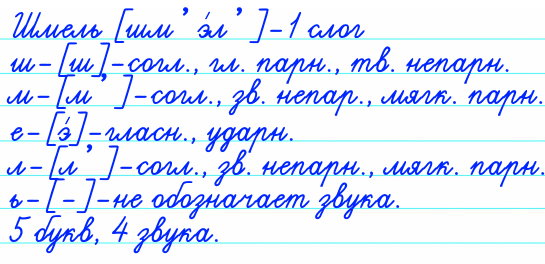 Шмель [шм’э́л’]-1 слог
ш-[ш]-согл., гл. парн., тв. непарн.
м-[м’]-согл., зв. непар., мягк. парн.
е-[э́]-гласн., ударн.
л-[л’]-согл., зв. непарн., мягк. парн.
ь-[-]-не обозначает звука.
5 букв, 4 звука.